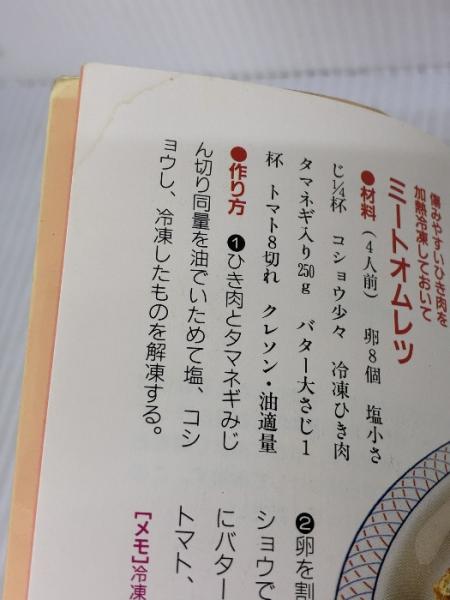 傷みやすいひき肉を
加熱冷凍しておいて
ミートオムレツ
●材料（4人前） 卵8個 塩小さ
じ¼杯 コショウ少々 冷凍ひき肉
タマネギ入り250g バター大さじ1
杯 トマト8切れ クレソン・油適量
●作り方 ❶ひき肉とタマネギみじ
ん切り同量を油でいためて塩、コシ
ョウし、冷凍したものを解凍する。
❷卵を割
ショウで
にバター
トマト、
[メモ]冷凍